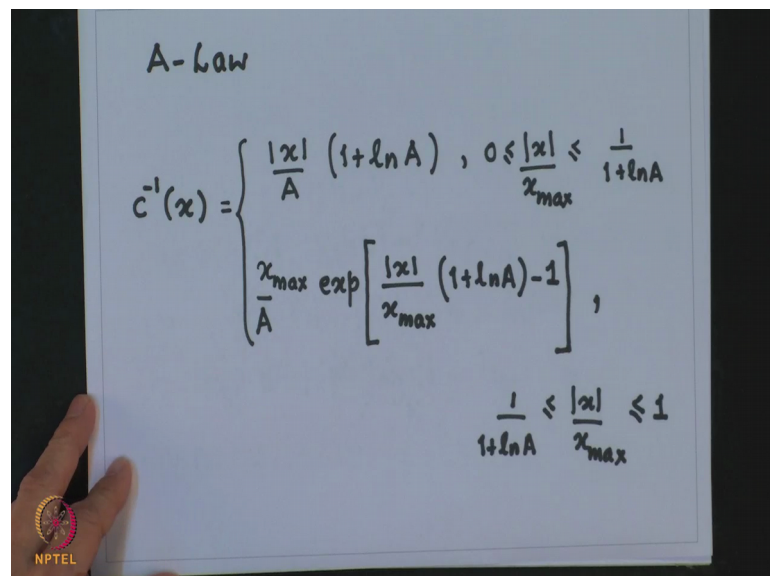 A-Law
c⁻¹(x) = { |x|/A (1+lnA) , 0 ≤ |x|/x_max ≤ 1/(1+lnA)
x_max/A exp[ |x|/x_max (1+lnA) -1 ] ,
1/(1+lnA) ≤ |x|/x_max ≤ 1
NPTEL